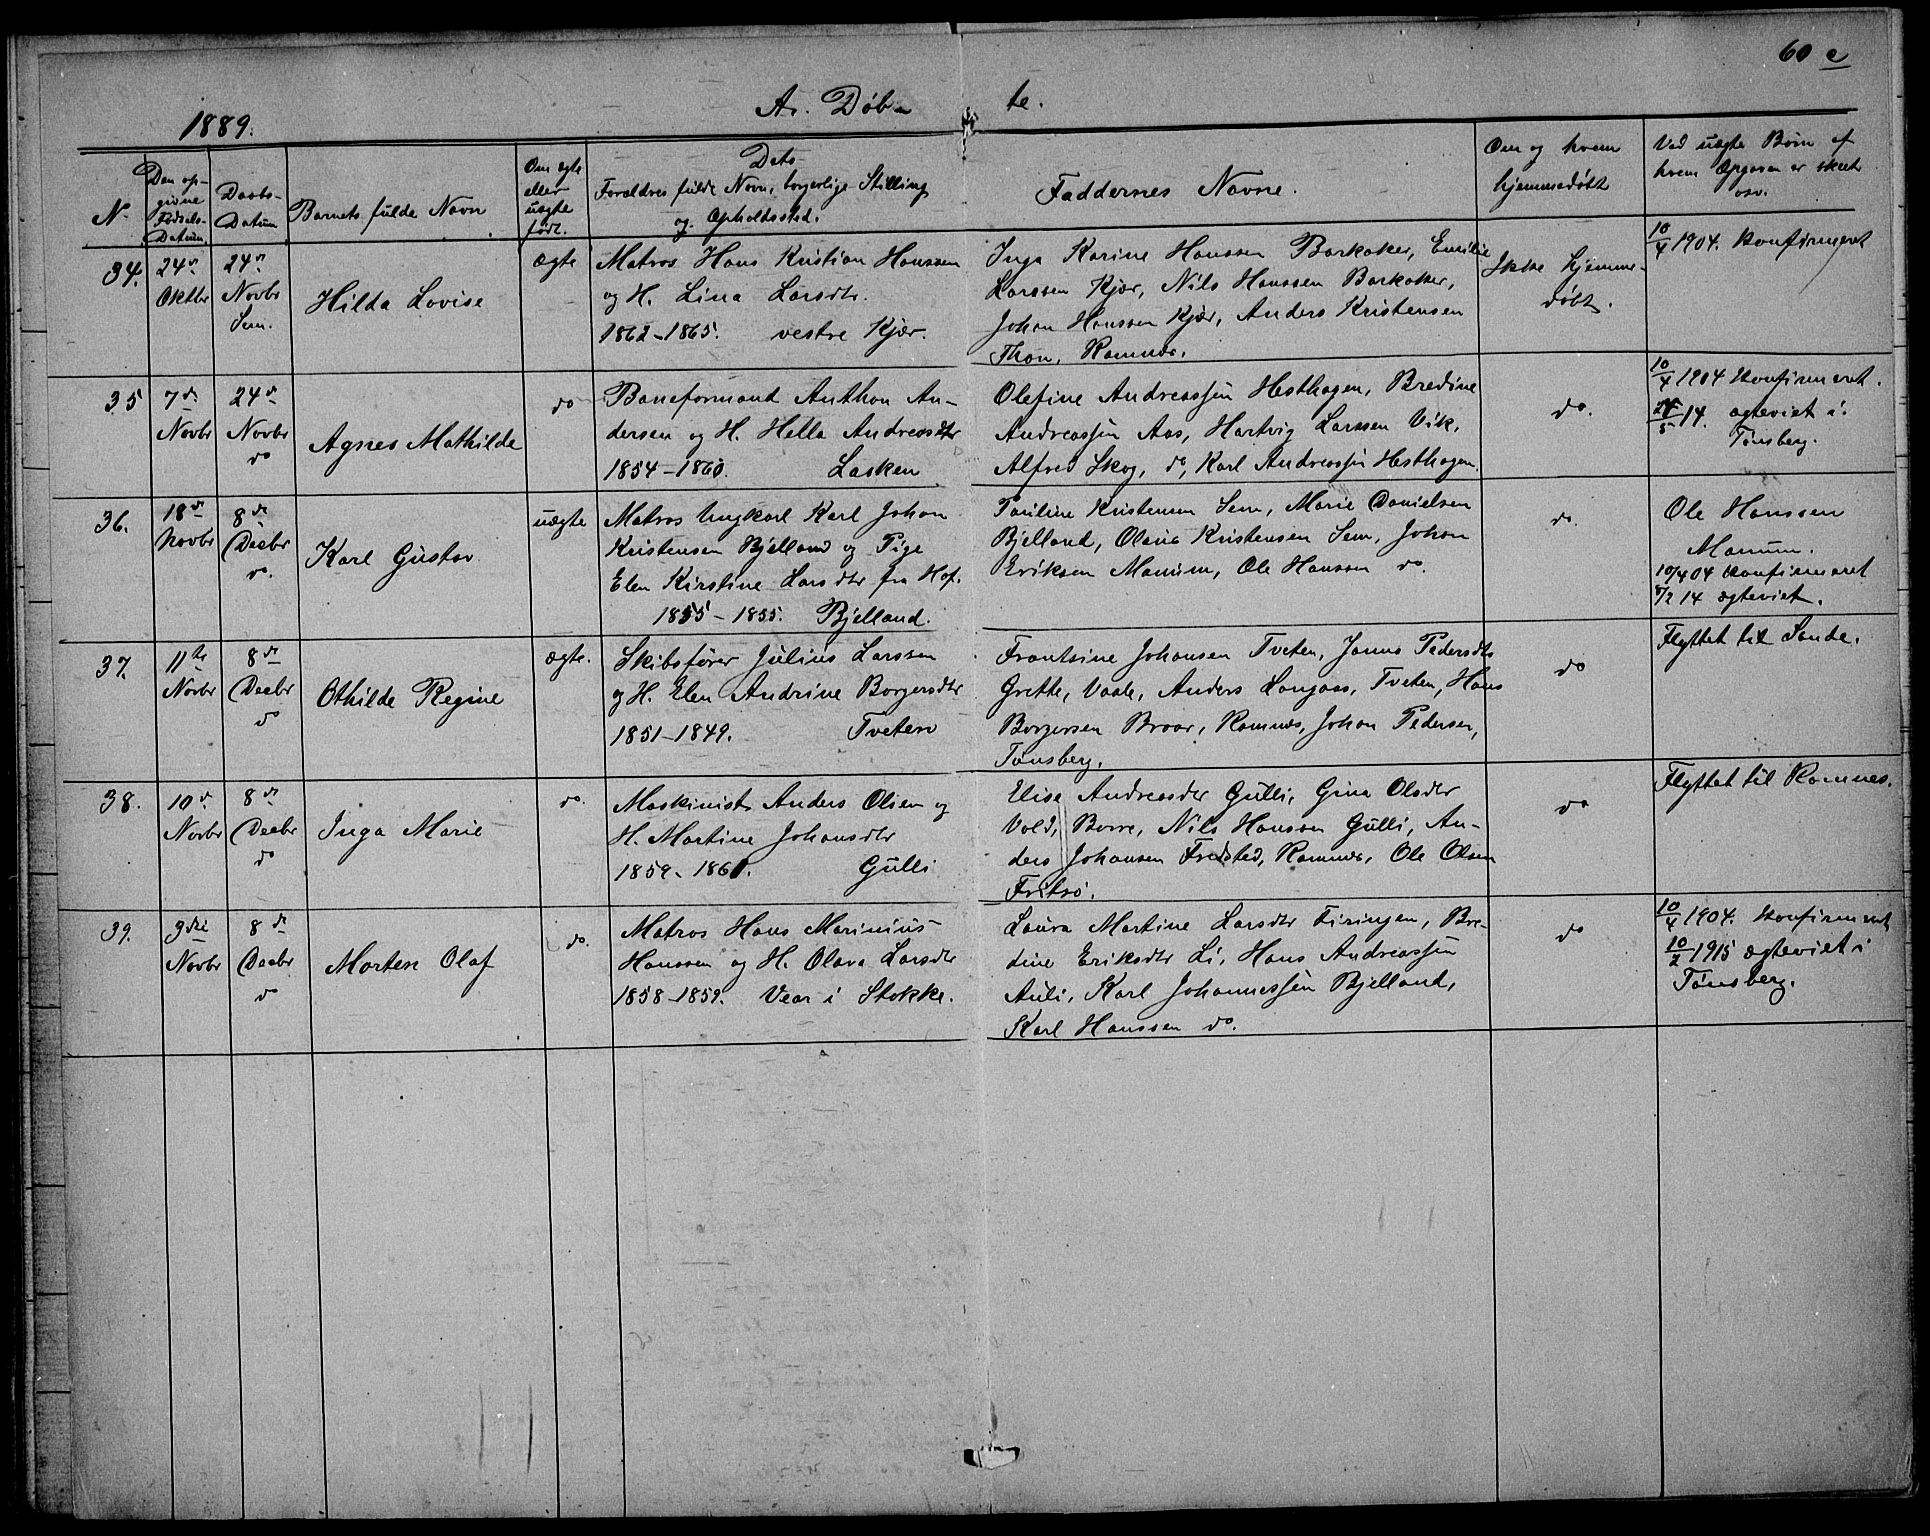 60 a
A. Døb te.
1889.
N.
Den op-
givne
Fødsels-
Datum.
Daabs-
Datum
Barnets fulde Navn
Om ægte
eller
uægte
født.
Dets
Forældres fulde Navn, borgerlige Stilling
og Opholdssted.
Faddernes Navne.
Om og hvem
hjemmedøbt
Ved uægte Børn af
hvem Opgaven er skeet
osv.
34.
24de
Oktbr
24de
Novbr
Sem.
Hilda Lovise
ægte
Matros Hans Kristian Hanssen
og H. Lina Larsdtr.
1862-1865. vestre Kjær.
Inga Karine Hanssen Barkaker, Emilie
Larssen Kjær, Nils Hanssen Barkaker,
Johan Hanssen Kjær, Anders Kristensen
Thon, Ramnæs.
Ikke hjemme-
døbt.
10/4 1904. konfirmeret
35
7de
Novbr
24de
Novbr
do
Agnes Mathilde
do
Baneformand Anthon An-
dersen og H. Hella Andreasdtr
1854-1860. Lasken
Olefine Andreassen Hesthagen, Bredine
Andreassen Aas, Hartvig Larssen Vik,
Alfred Skog, do, Karl Andreassen Hesthagen.
do.
10/4 1904 konfirmeret.
24/5 14. ægteviet i
Tønsberg.
36.
18de
Novbr
8de
Decbr
do.
Karl Gustav
uægte
Matros Ungkarl Karl Johan
Kristensen Bjelland og Pige
Elen Kirstine Larsdtr fra Hof.
1855-1855. Bjelland.
Pauline Kristensen Sem, Marie Danielsen
Bjelland, Olava Kristensen Sem, Johan
Eriksen Manum, Ole Hanssen do.
do.
Ole Hanssen
Manum.
10/4 04 konfirmeret
8/2 14 ægteviet.
37.
11te
Novbr
8de
Decbr
do
Othilde Regine
ægte.
Skibsfører Julius Larssen
og H. Elen Andrine Borgersdtr
1851-1849. Tveten
Frantsine Johansen Tveten, Janna Pedersdtr
Grette, Vaale, Anders Langaas, Tveten, Hans
Borgersen Braar, Ramnæs, Johan Pedersen,
Tønsberg.
do
Flyttet til Sande.
38.
10de
Novbr
8de
Decbr
do
Inga Marie
do.
Maskinist Anders Olsen og
H. Martine Johansdtr
1859-1861. Gulli
Elise Andreasdtr Gulli, Gina Olsdtr
Vold, Borre, Nils Hanssen Gulli, An-
ders Johansen Fredsted, Ramnæs, Ole Olsen
Fritsø.
do
Flyttet til Ramnes.
39.
3die
Novbr
8de
Decbr
do
Morten Olaf
do.
Matros Hans Marinius
Hanssen og H. Olava Larsdtr
1858-1859. Vear i Stokke.
Laura Martine Larsdtr Firingen, Bre-
dine Eriksdtr Li, Hans Andreassen
Auli, Karl Johannessen Bjelland,
Karl Hanssen do.
do
10/4 1904. konfirmeret
10/2 1915 ægteviet i
Tønsberg.